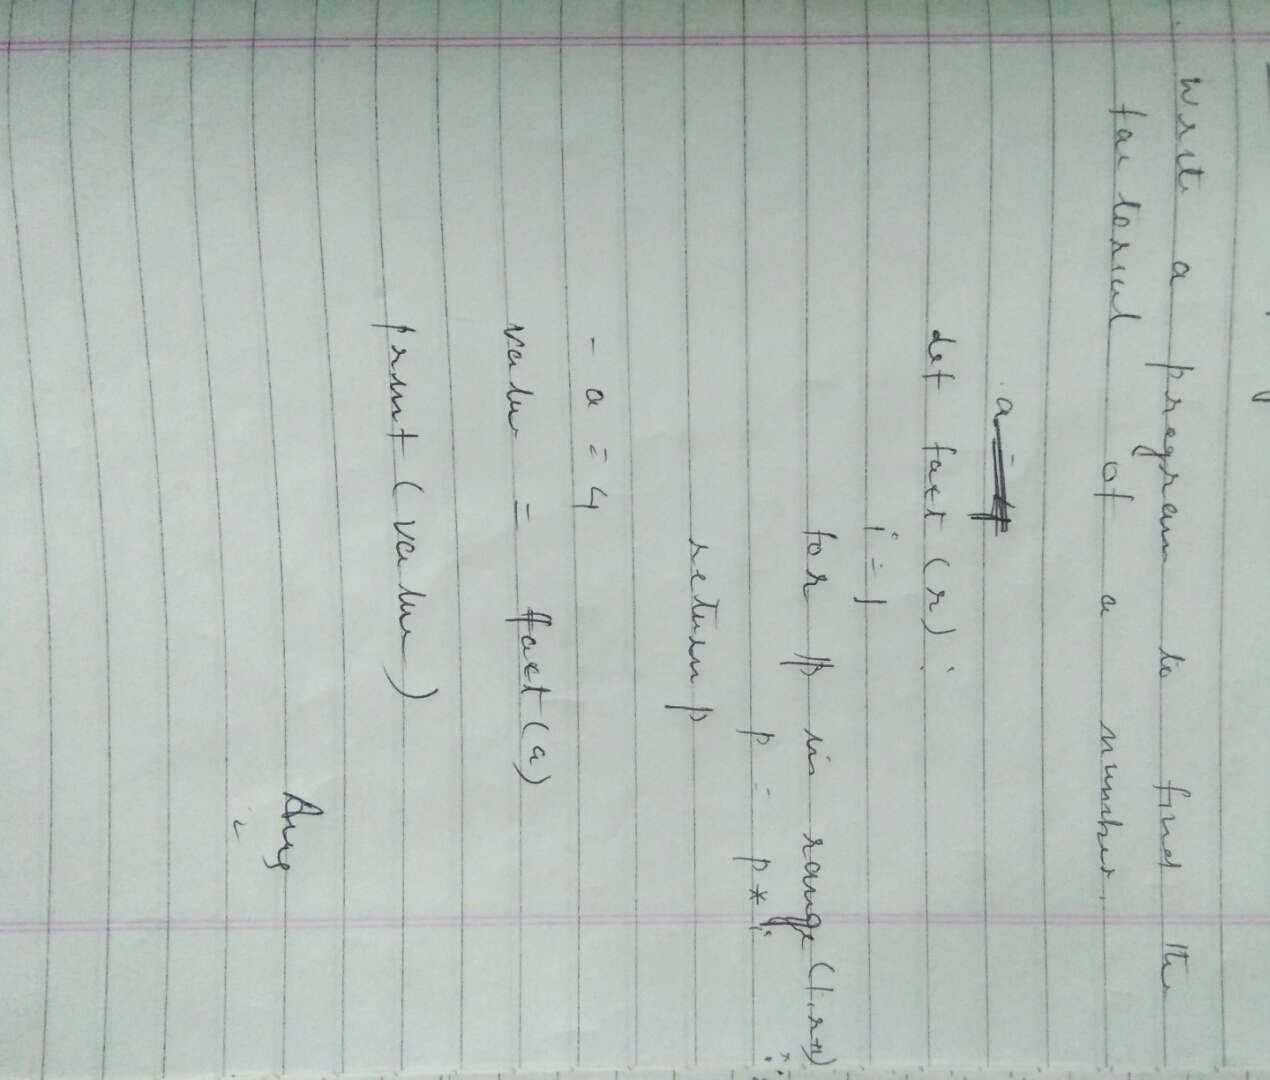 Write a program to find the
factorial of a number.
def fact(r):
i = 1
for p in range(1, r+1)
p = p * i
return p
- a = 4
value = fact(a)
print(value)
Ans